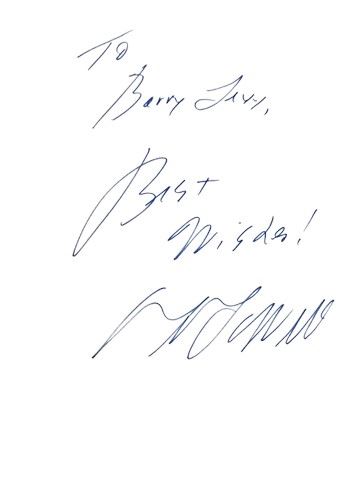 To
Barry Levy,
Best
Wishes!